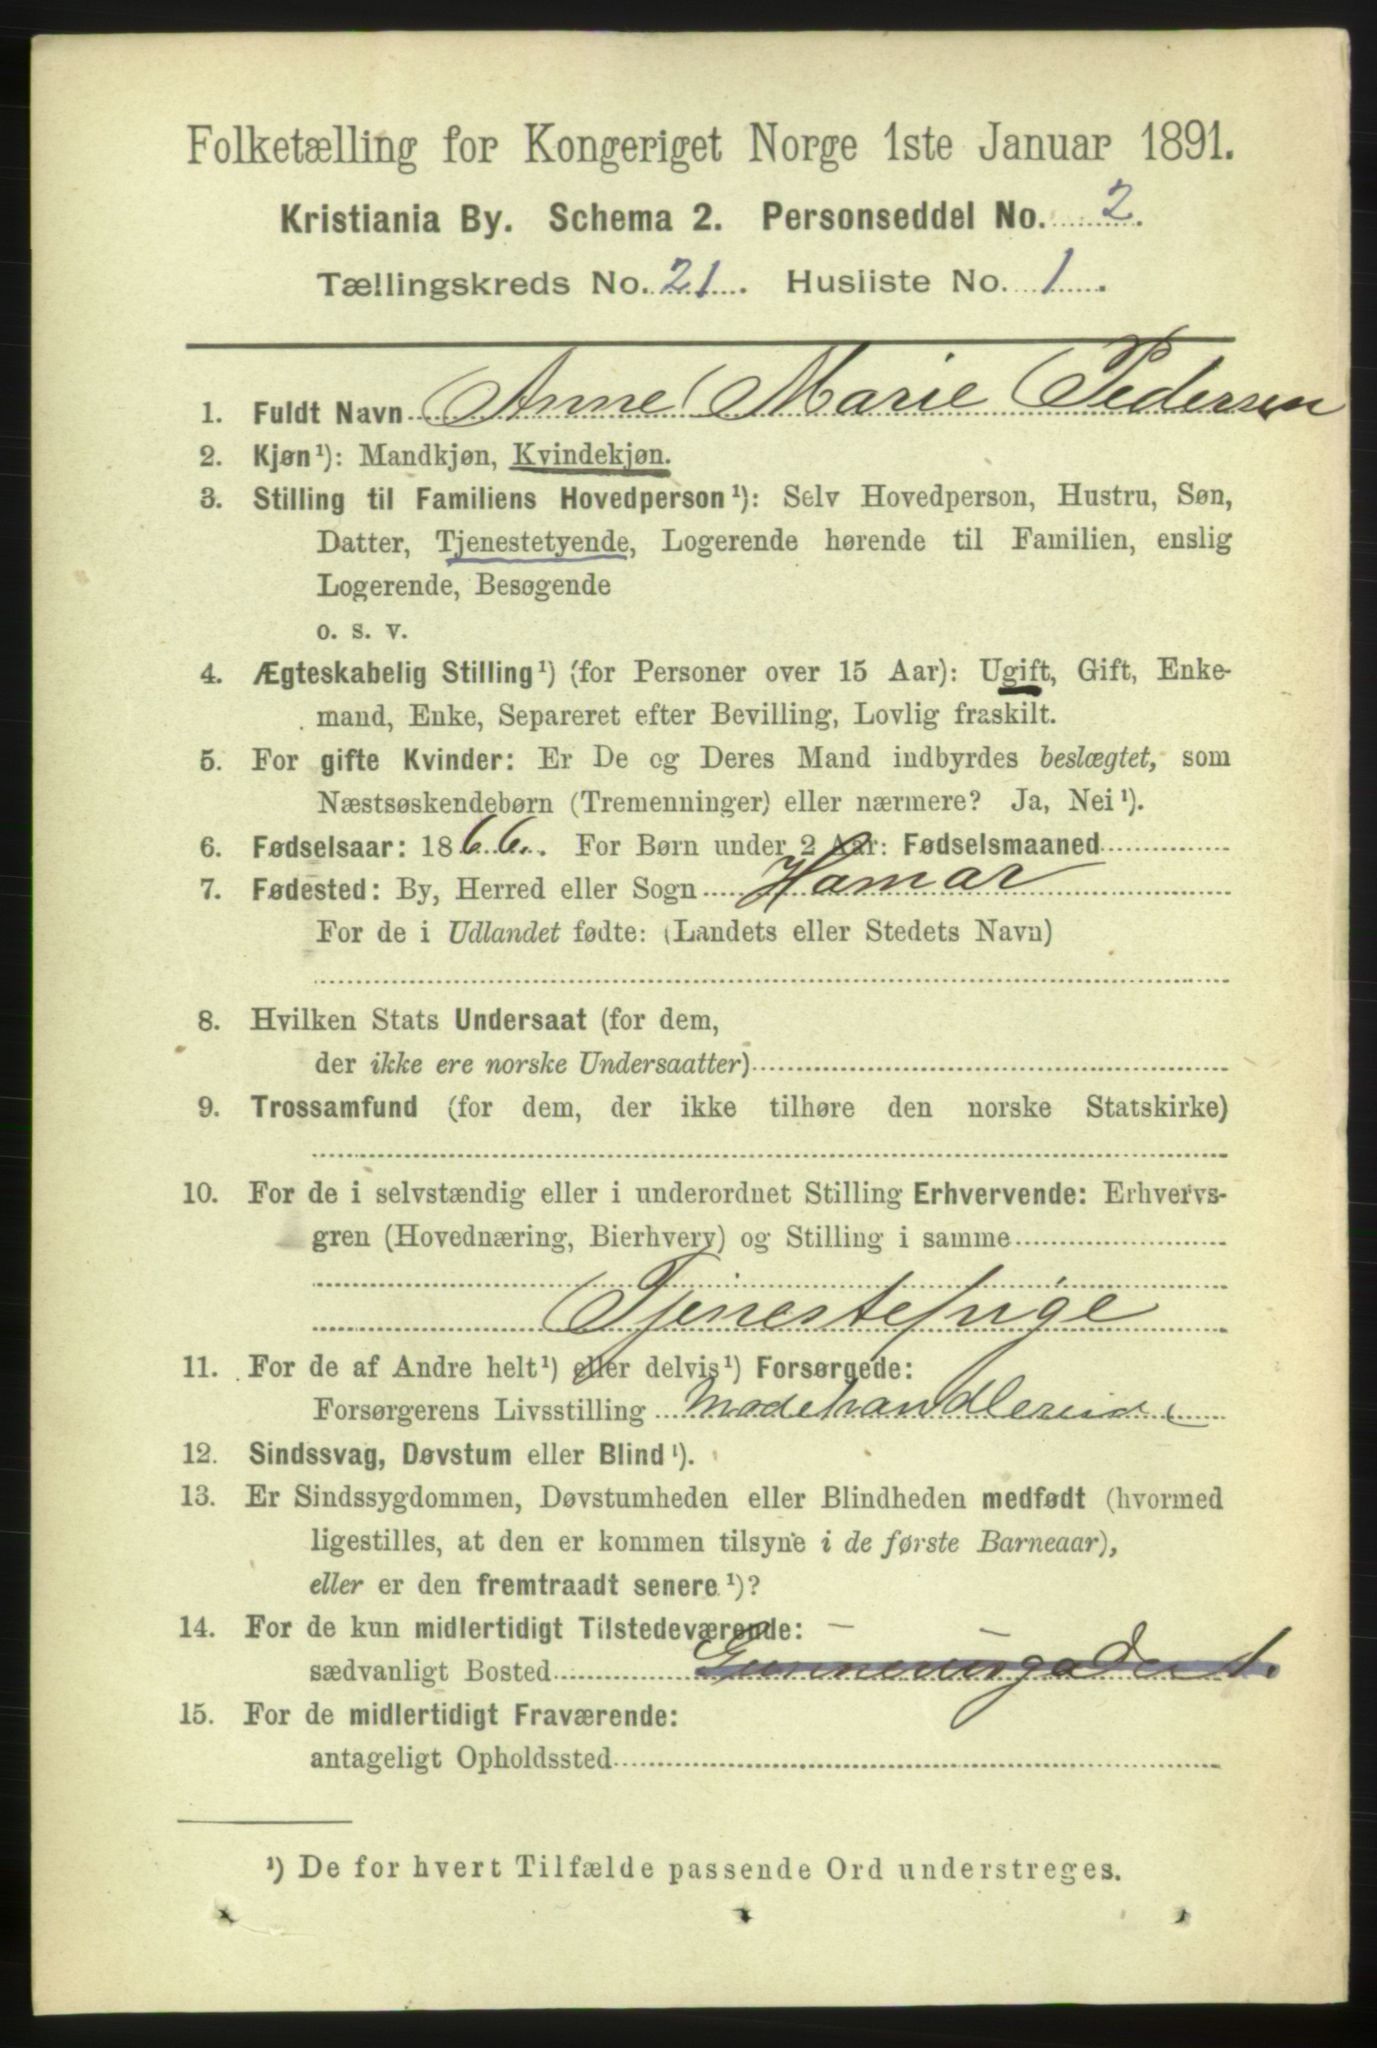 Folketælling for Kongeriget Norge 1ste Januar 1891.
Kristiania By. Schema 2. Personseddel No. 2.
Tællingskreds No. 21. Husliste No. 1.
1. Fuldt Navn Anne Marie Pedersen
2. Kjøn¹): Mandkjøn, Kvindekjøn.
3. Stilling til Familiens Hovedperson¹): Selv Hovedperson, Hustru, Søn,
Datter, Tjenestetyende, Logerende hørende til Familien, enslig
Logerende, Besøgende
o. s. v.
4. Ægteskabelig Stilling¹) (for Personer over 15 Aar): Ugift, Gift, Enke-
mand, Enke, Separeret efter Bevilling, Lovlig fraskilt.
5. For gifte Kvinder: Er De og Deres Mand indbyrdes beslægtet, som
Næstsøskendebørn (Tremenninger) eller nærmere? Ja, Nei¹).
6. Fødselsaar: 1866. For Børn under 2 Aar: Fødselsmaaned
7. Fødested: By, Herred eller Sogn Hamar
For de i Udlandet fødte: (Landets eller Stedets Navn)
8. Hvilken Stats Undersaat (for dem,
der ikke ere norske Undersaatter)
9. Trossamfund (for dem, der ikke tilhøre den norske Statskirke)
10. For de i selvstændig eller i underordnet Stilling Erhvervende: Erhvervs-
gren (Hovednæring, Bierhverv) og Stilling i samme
Tjenestepige
11. For de af Andre helt¹) eller delvis¹) Forsørgede:
Forsørgerens Livsstilling Modehandlerinde
12. Sindssvag, Døvstum eller Blind¹).
13. Er Sindssygdommen, Døvstumheden eller Blindheden medfødt (hvormed
ligestilles, at den er kommen tilsyne i de første Barneaar),
eller er den fremtraadt senere¹)?
14. For de kun midlertidigt Tilstedeværende: —
sædvanligt Bosted Gunnerusgaden 1.
15. For de midlertidigt Fraværende:
antageligt Opholdssted
¹) De for hvert Tilfælde passende Ord understreges.